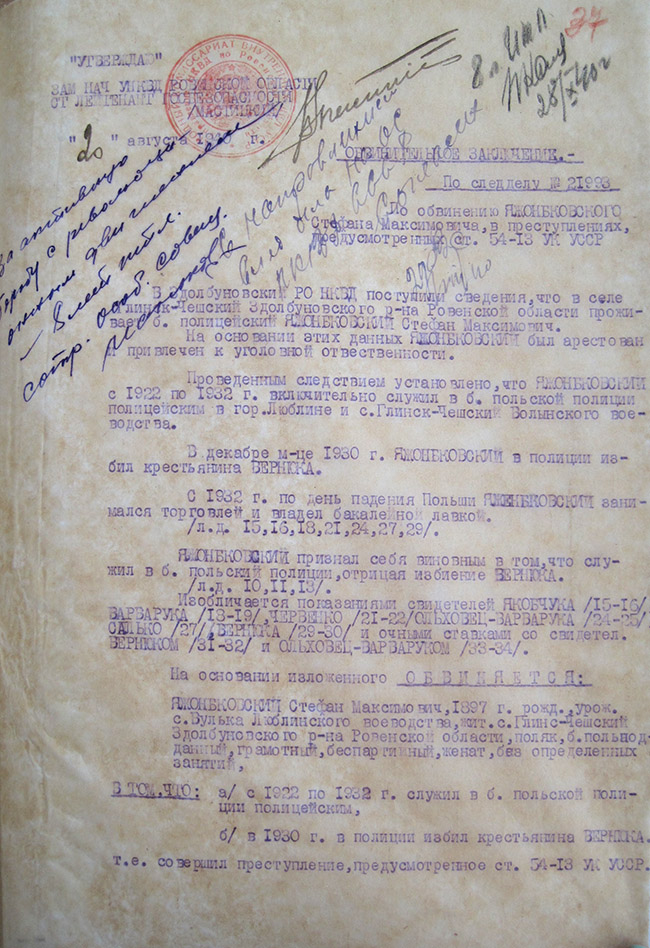 37
"УТВЕРЖДАЮ"
ЗАМ НАЧ УНКВД РОВЕНСКОЙ ОБЛАСТИ
СТ ЛЕЙТЕНАНТ ГОСБЕЗОПАСНОСТИ
/МАСТИЦКИЙ/
" 20 " августа 1940 г.
8 л. ИТЛ
28/XI 40 г
За активную
борьбу с революцион
ным движением
– 8 лет итл.
сотр. особ. совещ.
ОБВИНИТЕЛЬНОЕ ЗАКЛЮЧЕНИЕ.-
По следделу № 21993
По обвинению ЯЖОМБКОВСКОГО
Стефана Максимовича, в преступлениях,
предусмотренных ст. 54-13 УК УССР
В Здолбуновский РО НКВД поступили сведения, что в селе
Глинск-Чешский Здолбуновского р-на Ровенской области прожи-
вает б. полицейский ЯЖОМБКОВСКИЙ Стефан Максимович.
На основании этих данных ЯЖОМБКОВСКИЙ был арестован
и привлечен к уголовной отвественности.
Проведенным следствием установлено, что ЯЖОМБКОВСКИЙ
с 1922 по 1932 г. включительно служил в б. польской полиции
полицейским в гор.Люблине и с.Глинск-Чешский Волынского вое-
водства.
В декабре м-це 1930 г. ЯЖОМБКОВСКИЙ в полиции из-
бил крестьянина ВЕРНЮКА.
С 1932 г. по день падения Польши ЯЖЕМБКОВСКИЙ зани-
мался торговлей и владел бакалейной лавкой.
/л.д. 15,16,18,21,24,27,29/.
ЯЖОМБКОВСКИЙ признал себя виновным в том,что слу-
жил в б. польский полиции,отрицая избиение ВЕРНЮКА.
/л.д. 10,11,13/.
Изобличается показаниями свидетелей ЯКОБЧУКА /15-16/
ВАРВАРУКА /18-19/,ЧЕРВЕНКО /21-22/ОЛЬХОВЕЦ-ВАРВАРУКА /24-25/
САЛЬКО /27/,ВЕРНЮКА /29-30/ и очными ставками со свидетел.
ВЕРНЮКОМ /31-32/ и ОЛЬХОВЕЦ-ВАРВАРУКОМ /33-34/.
На основании изложенного ОБВИНЯЕТСЯ:
ЯЖОМБКОВСКИЙ Стефан Максимович,1897 г. рожд.,урож.
с.Вулька Люблинского воеводства,жит.с.Глинс-Чешский
Здолбуновского р-на Ровенской области,поляк,б.польпод-
данный,грамотный,беспартийный,женат,без определенных
занятий,
В ТОМ,ЧТО: а/ с 1922 по 1932 г. служил в б. польской поли-
ции полицейским,
б/ в 1930 г. в полиции избил крестьянина ВЕРНЮКА.
т.е. совершил преступление,предусмотренное ст. 54-13 УК УССР.